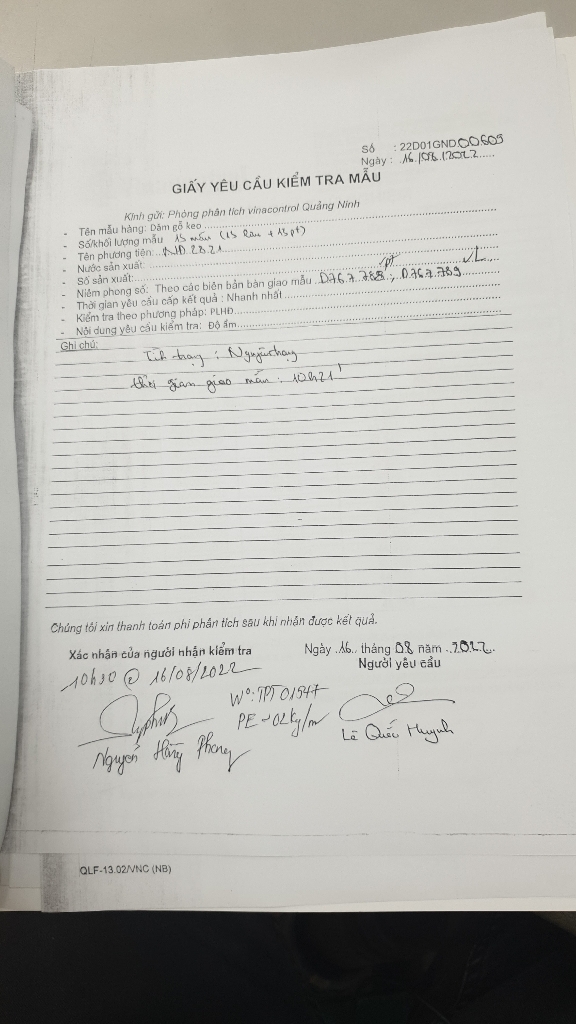 Số : 22D01GND00609
Ngày : 16/08/2022
GIẤY YÊU CẦU KIỂM TRA MẪU
Kính gửi: Phòng phân tích vinacontrol Quảng Ninh
- Tên mẫu hàng: Dăm gỗ keo
- Số/khối lượng mẫu 15 mẫu (15 lưu + 15 pt)
- Tên phương tiện: NĐ 2821
- Nước sản xuất:
- Số sản xuất:
pt VL
- Niêm phong số: Theo các biên bản bàn giao mẫu D767.788, D767.789
- Thời gian yêu cầu cấp kết quả : Nhanh nhất
- Kiểm tra theo phương pháp: PLHĐ
- Nội dung yêu cầu kiểm tra: Độ ẩm
Ghi chú:
Tình trạng : Nguyên trạng
thời gian giao mẫu : 10h21'
Chúng tôi xin thanh toán phí phân tích sau khi nhận được kết quả.
Xác nhận của người nhận kiểm tra
Ngày 16 tháng 08 năm 2022
Người yêu cầu
10h30 @ 16/08/2022
Wº: TPT 01547
PE - 02kg/m
Nguyễn Hồng Phong
Lê Quốc Huynh
QLF-13.02/VNC (NB)